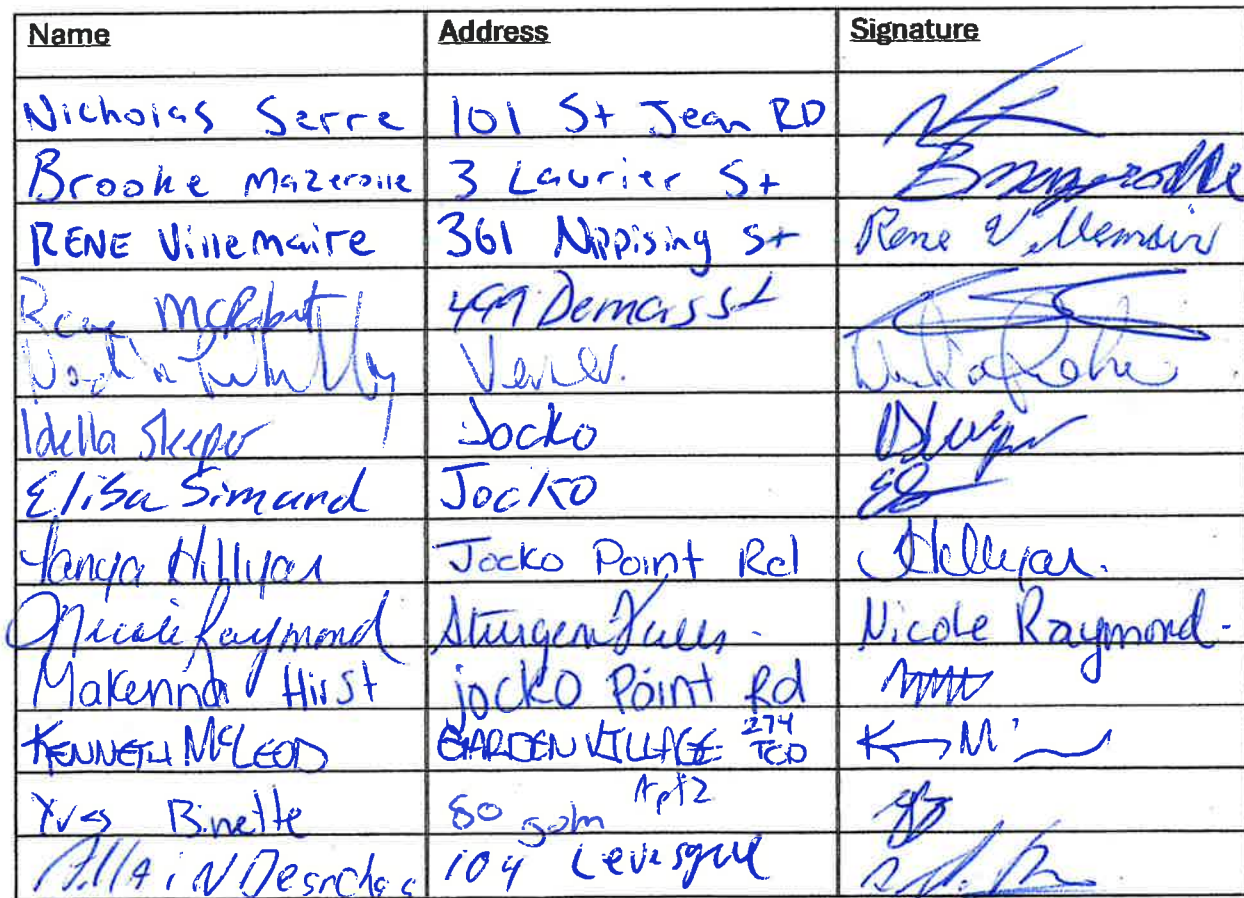 Name Address Signature
Nicholas Serre 101 St Jean RD
Brooke Mazerolle 3 Laurier St BMazerolle
RENE Villemaire 361 Nippising St Rene Villemair
Rene McRobert 499 Demers St
Verner.
Idella Sleeper Jocko
Elisa Simand Jocko
Tanya Hillyar Jocko Point Rd Hillyar.
Nicole Raymond Sturgen Falls - Nicole Raymond -
Makenna Hirst jocko Point Rd
KENNETH McLEOD GARDEN VILLAGE 274 TCD K M
Yves Binette 80 John Apt 2
104 Levesque